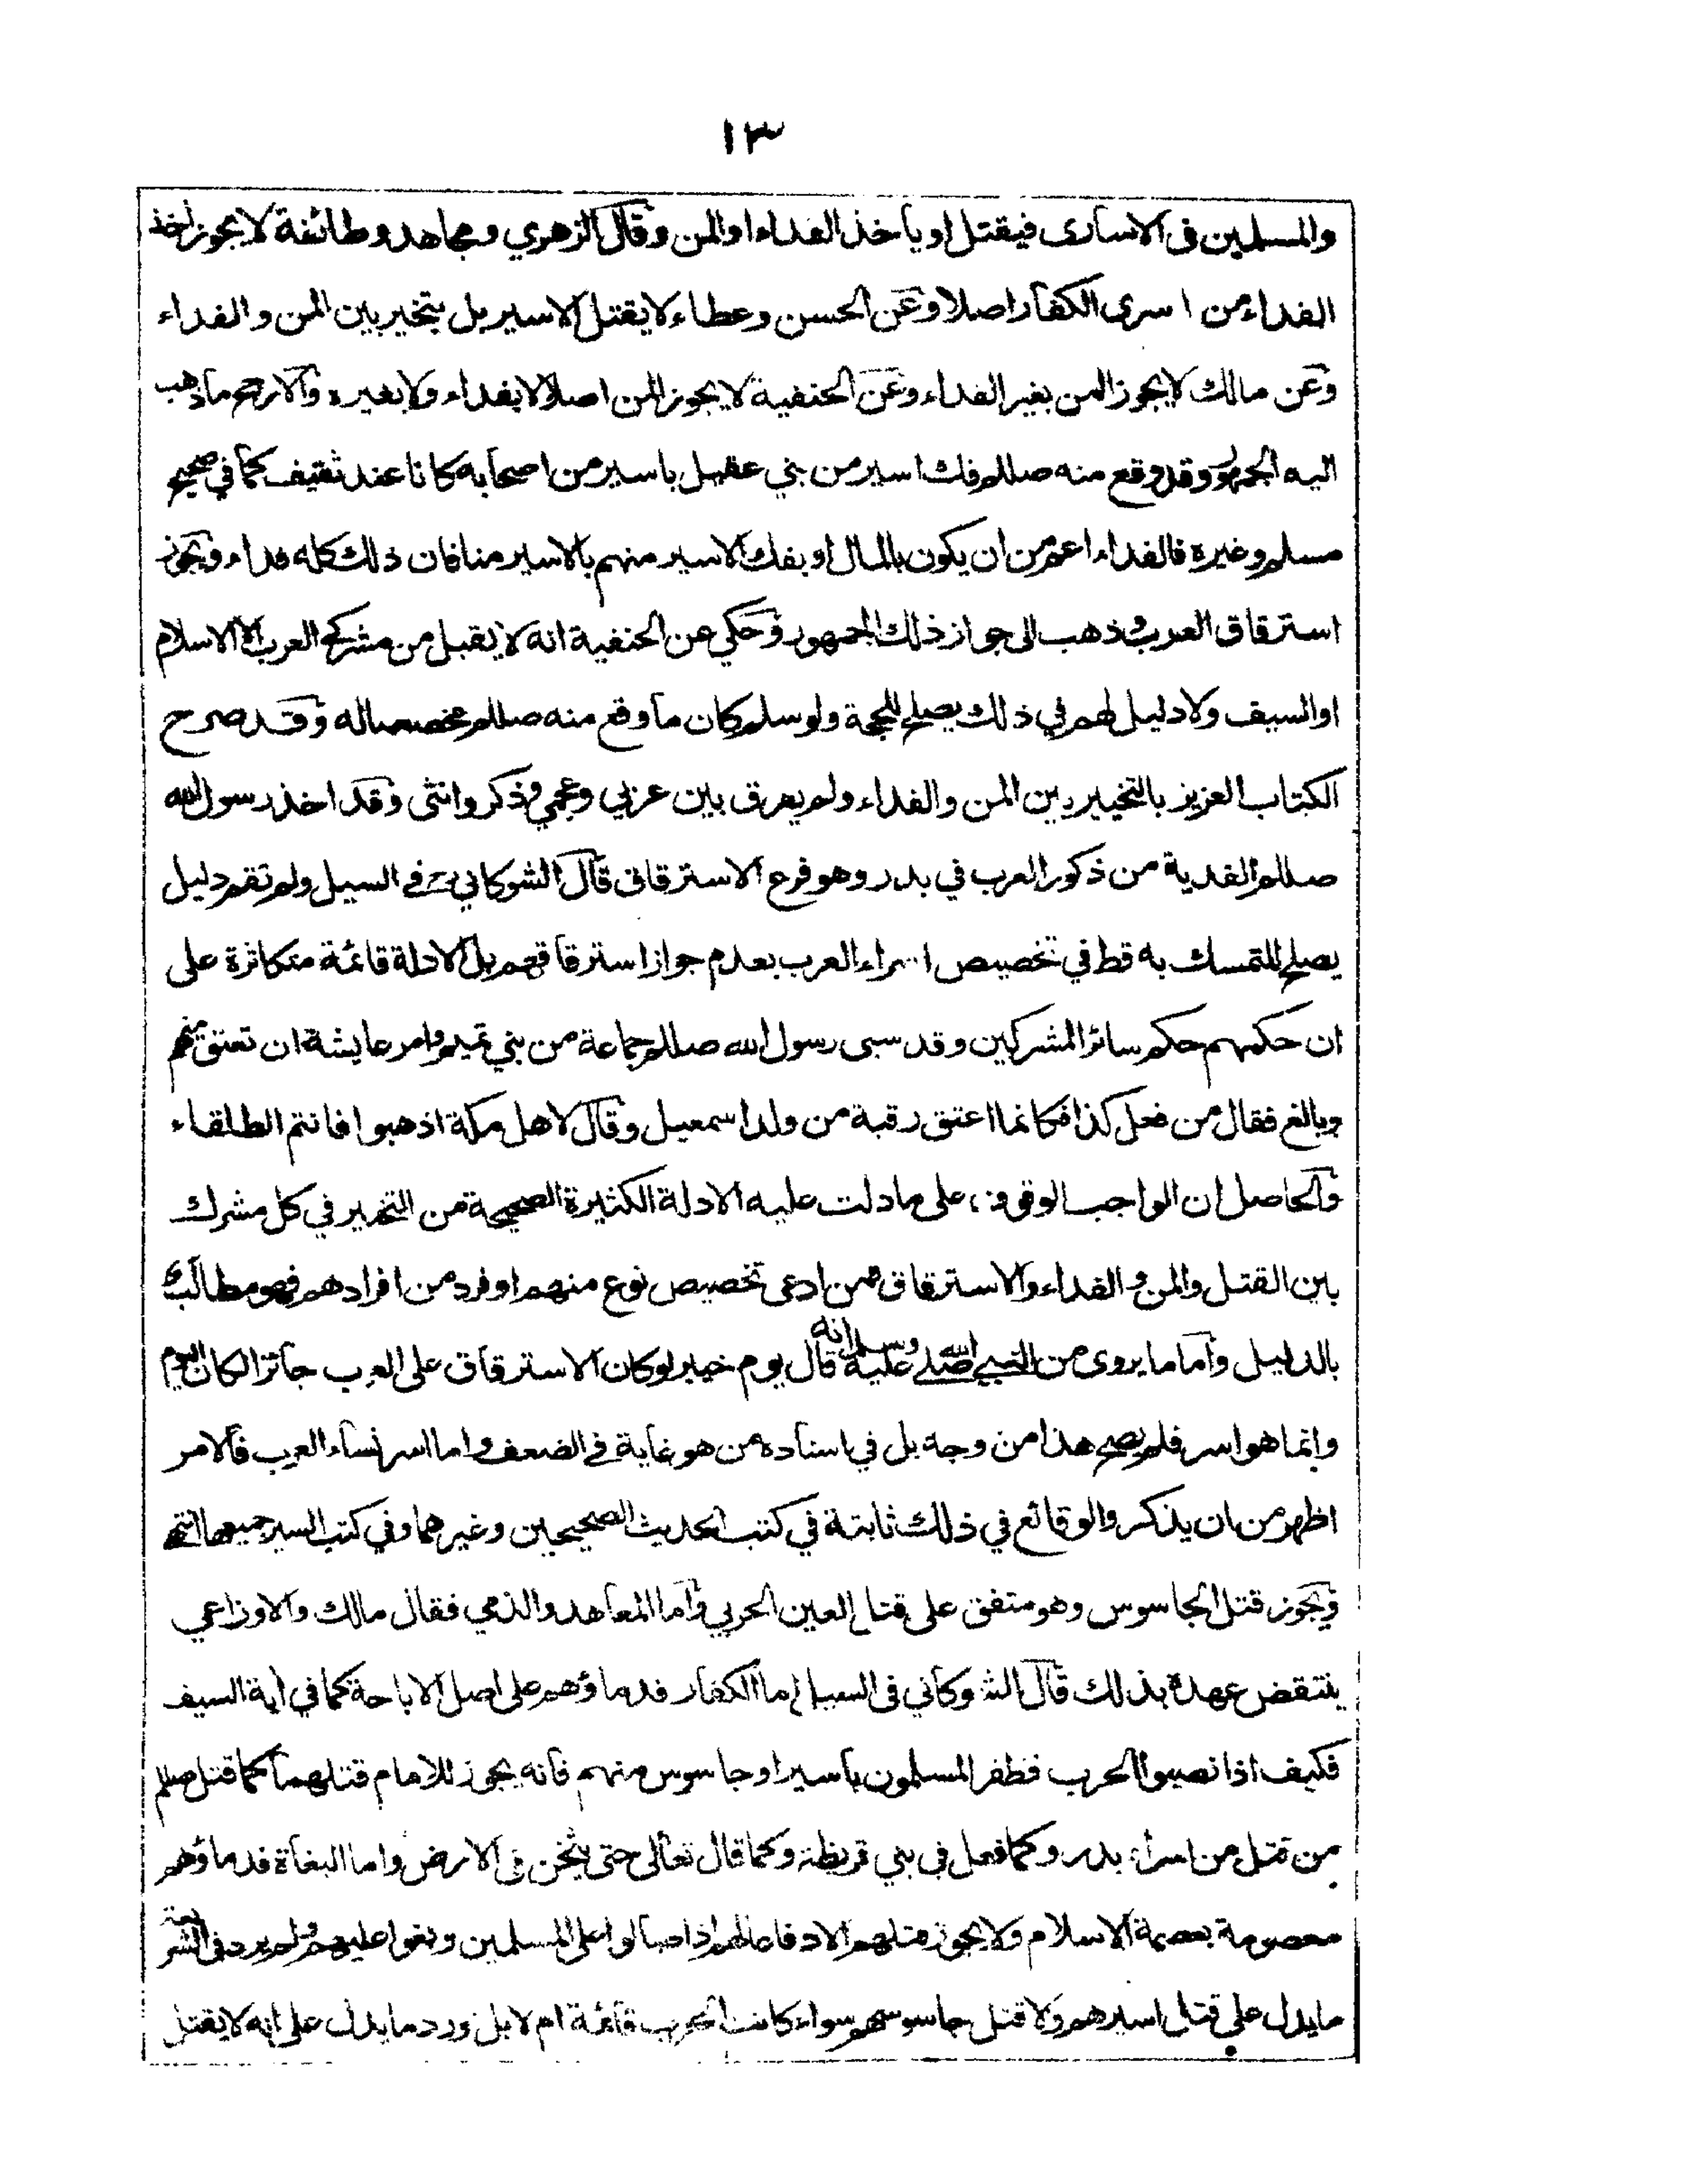 ١٣
والمسلمين فى الاسارى فيقتل او ياخذ الفداء او المن وقال الزهري ومجاهد وطائفة لا يجوز اخذ
الفداء من اسرى الكفار اصلا وعن الحسن وعطاء لا يقتل الاسير بل يتخير بين المن والفداء
وعن مالك لا يجوز المن بغير الفداء وعن الحنفية لا يجوز المن اصلا لا بفداء ولا بغيره والارجح ما ذهب
اليه الجمهور وقد وقع منه صللم فك اسير من بني عقيل باسير من اصحابه كانا عند ثقيف كما في صحيح
مسلم وغيره فالفداء اعم من ان يكون بالمال او بفك الاسير منهم بالاسير منا فان ذلك كله فداء ويجوز
استرقاق العرب وذهب الى جواز ذلك الجمهور وحكي عن الحنفية انه لا يقبل من مشركي العرب الا الاسلام
او السيف ولا دليل لهم في ذلك يصلح للحجة ولو سلم كان ما وقع منه صللم مخصصا له وقد صرح
الكتاب العزيز بالتخيير بين المن والفداء ولم يفرق بين عربي وعجمي وذكر وانثى وقد اخذ رسول الله
صللم الفدية من ذكور العرب في بدر وهو فرع الاسترقاق قال الشوكاني رح في السيل ولم تقم دليل
يصلح للتمسك به قط في تخصيص اسراء العرب بعدم جواز استرقاقهم بل الادلة قائمة متكاثرة على
ان حكمهم حكم سائر المشركين وقد سبى رسول الله صللم جماعة من بني تميم وامر عايشة ان تعتق منهم
وبالغ فقال من فعل كذا فكانما اعتق رقبة من ولد اسمعيل وقال لاهل مكة اذهبوا فانتم الطلقاء
والحاصل ان الواجب الوقوف على ما دلت عليه الادلة الكثيرة الصحيحة من التخيير في كل مشرك
بين القتل والمن والفداء والاسترقاق فمن ادعى تخصيص نوع منهم او فرد من افرادهم فهو مطالب
بالدليل واما ما يروى من النبي صلى الله عليه وسلم انه قال يوم خيبر لو كان الاسترقاق على العرب جائزا لكان اليوم
وانما هو اسر فلم يصح هذا من وجه بل في اسناده من هو غاية في الضعف واما اسر نساء العرب فالامر
اظهر من ان يذكر والوقائع في ذلك ثابتة في كتب الحديث الصحيحين وغيرهما وفي كتب السير جميعها انتهى
ويجوز قتل الجاسوس وهو متفق على قتل العين الحربي واما المعاهد والذمي فقال مالك والاوزاعي
ينتقض عهده بذلك قال الشوكاني في السيل اما الكفار فدماؤهم على اصل الاباحة كما في آية السيف
فكيف اذا نصبوا الحرب فظفر المسلمون باسير او جاسوس منهم فانه يجوز للامام قتلهما كما قتل صللم
من قتل من اسراء بدر وكما فعل في بني قريظة وكما قال تعالى حتى يثخن في الارض واما البغاة فدماؤهم
معصومة بعصمة الاسلام ولا يجوز قتلهم الا دفاعا لهم اذا صالوا على المسلمين وبغوا عليهم ولم يرد في الشريعة
ما يدل على قتل اسيرهم ولا قتل جاسوسهم سواء كانت الحرب قائمة ام لا بل ورد ما يدل على انه لا يقتل